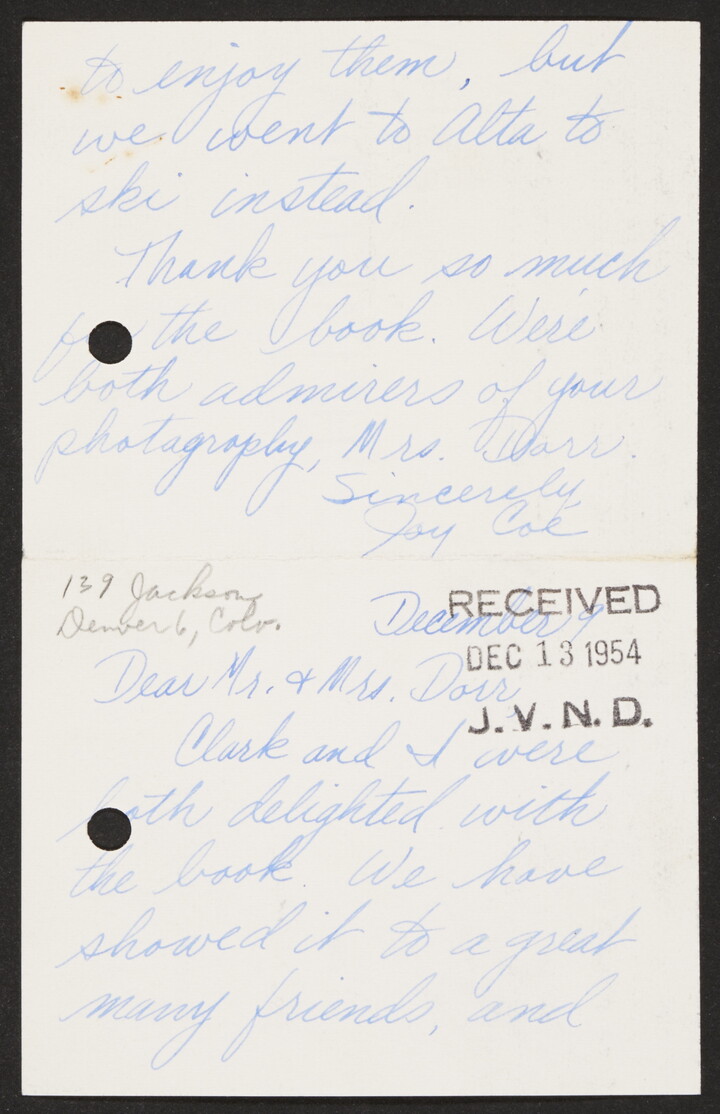 to enjoy them, but
we went to Alta to
ski instead.
Thank you so much
the book. We're
both admirers of your
photagrophy, Mrs. Dorr.
Sincerely,
Joy Coe
139 Jackson
Denver 6, Colo.
December 9
RECEIVED
DEC 13 1954
J. V. N. D.
Dear Mr. & Mrs. Dorr,
Clark and I were
both delighted with
the book. We have
showed it to a great
many friends, and